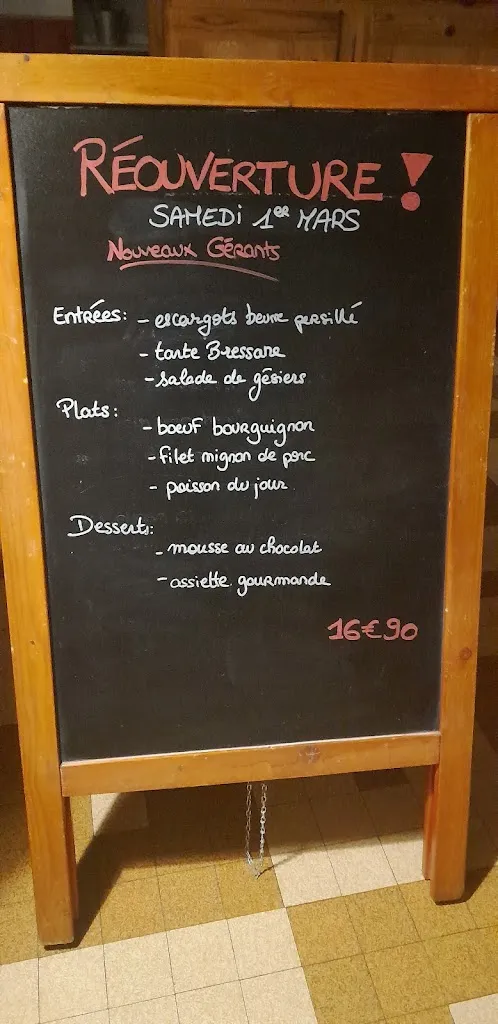 RÉOUVERTURE !
SAMEDI 1er MARS
Nouveaux Gérants
Entrées: - escargots beurre persillé
- tarte Bressane
- salade de gésiers
Plats:
- boeuf bourguignon
- filet mignon de porc
- poisson du jour
Desserts:
- mousse au chocolat
- assiette gourmande
16€90